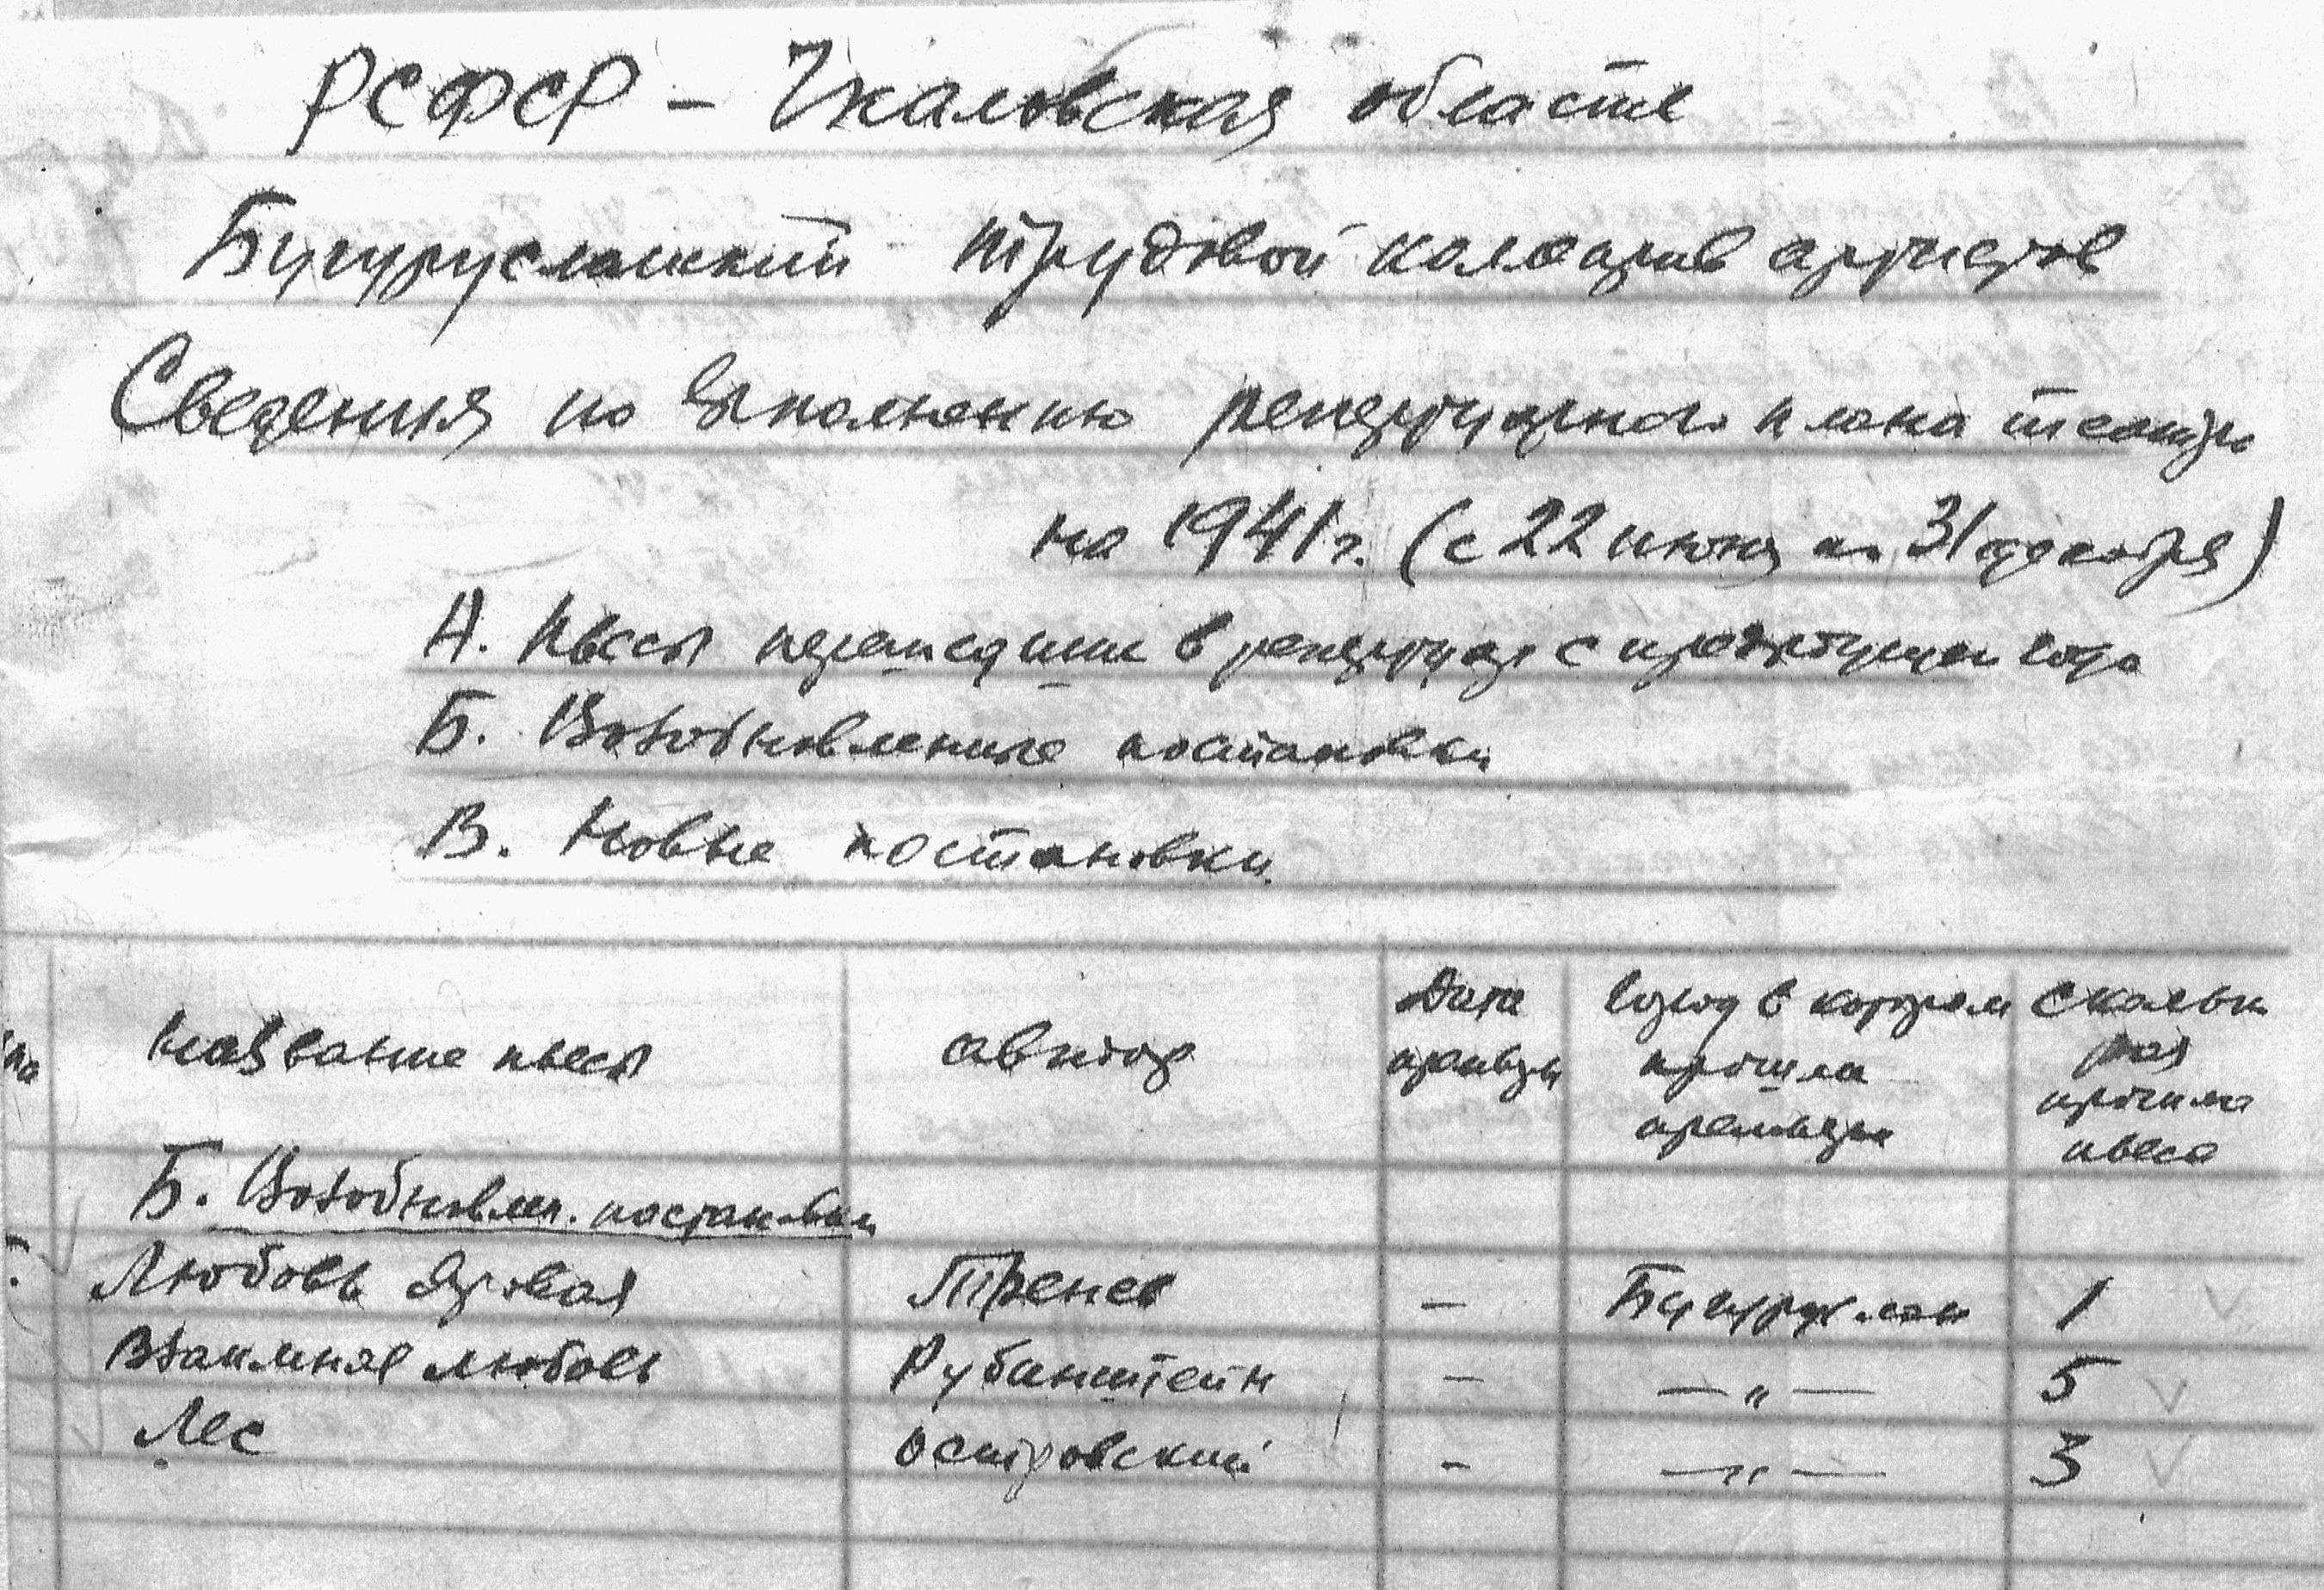 РСФСР – Чкаловская область
Бугурусланский трудовой коллектив артистов
Сведения по выполнению репертуарного плана театра
на 1941 г. (с 22 июня по 31 декабря)
А. Пьесы перешедшие в репертуар с предыдущего года
Б. Возобновление постановки
В. Новые постановки.
название пьесы автор Дата премьеры Город в котором прошла премьера Сколько раз прошла пьеса
Б. Возобновлен. постановки
Любовь Яровая Тренев – Бугуруслан 1
Взаимная любовь Рубинштейн – –"– 5
Лес Островский – –"– 3